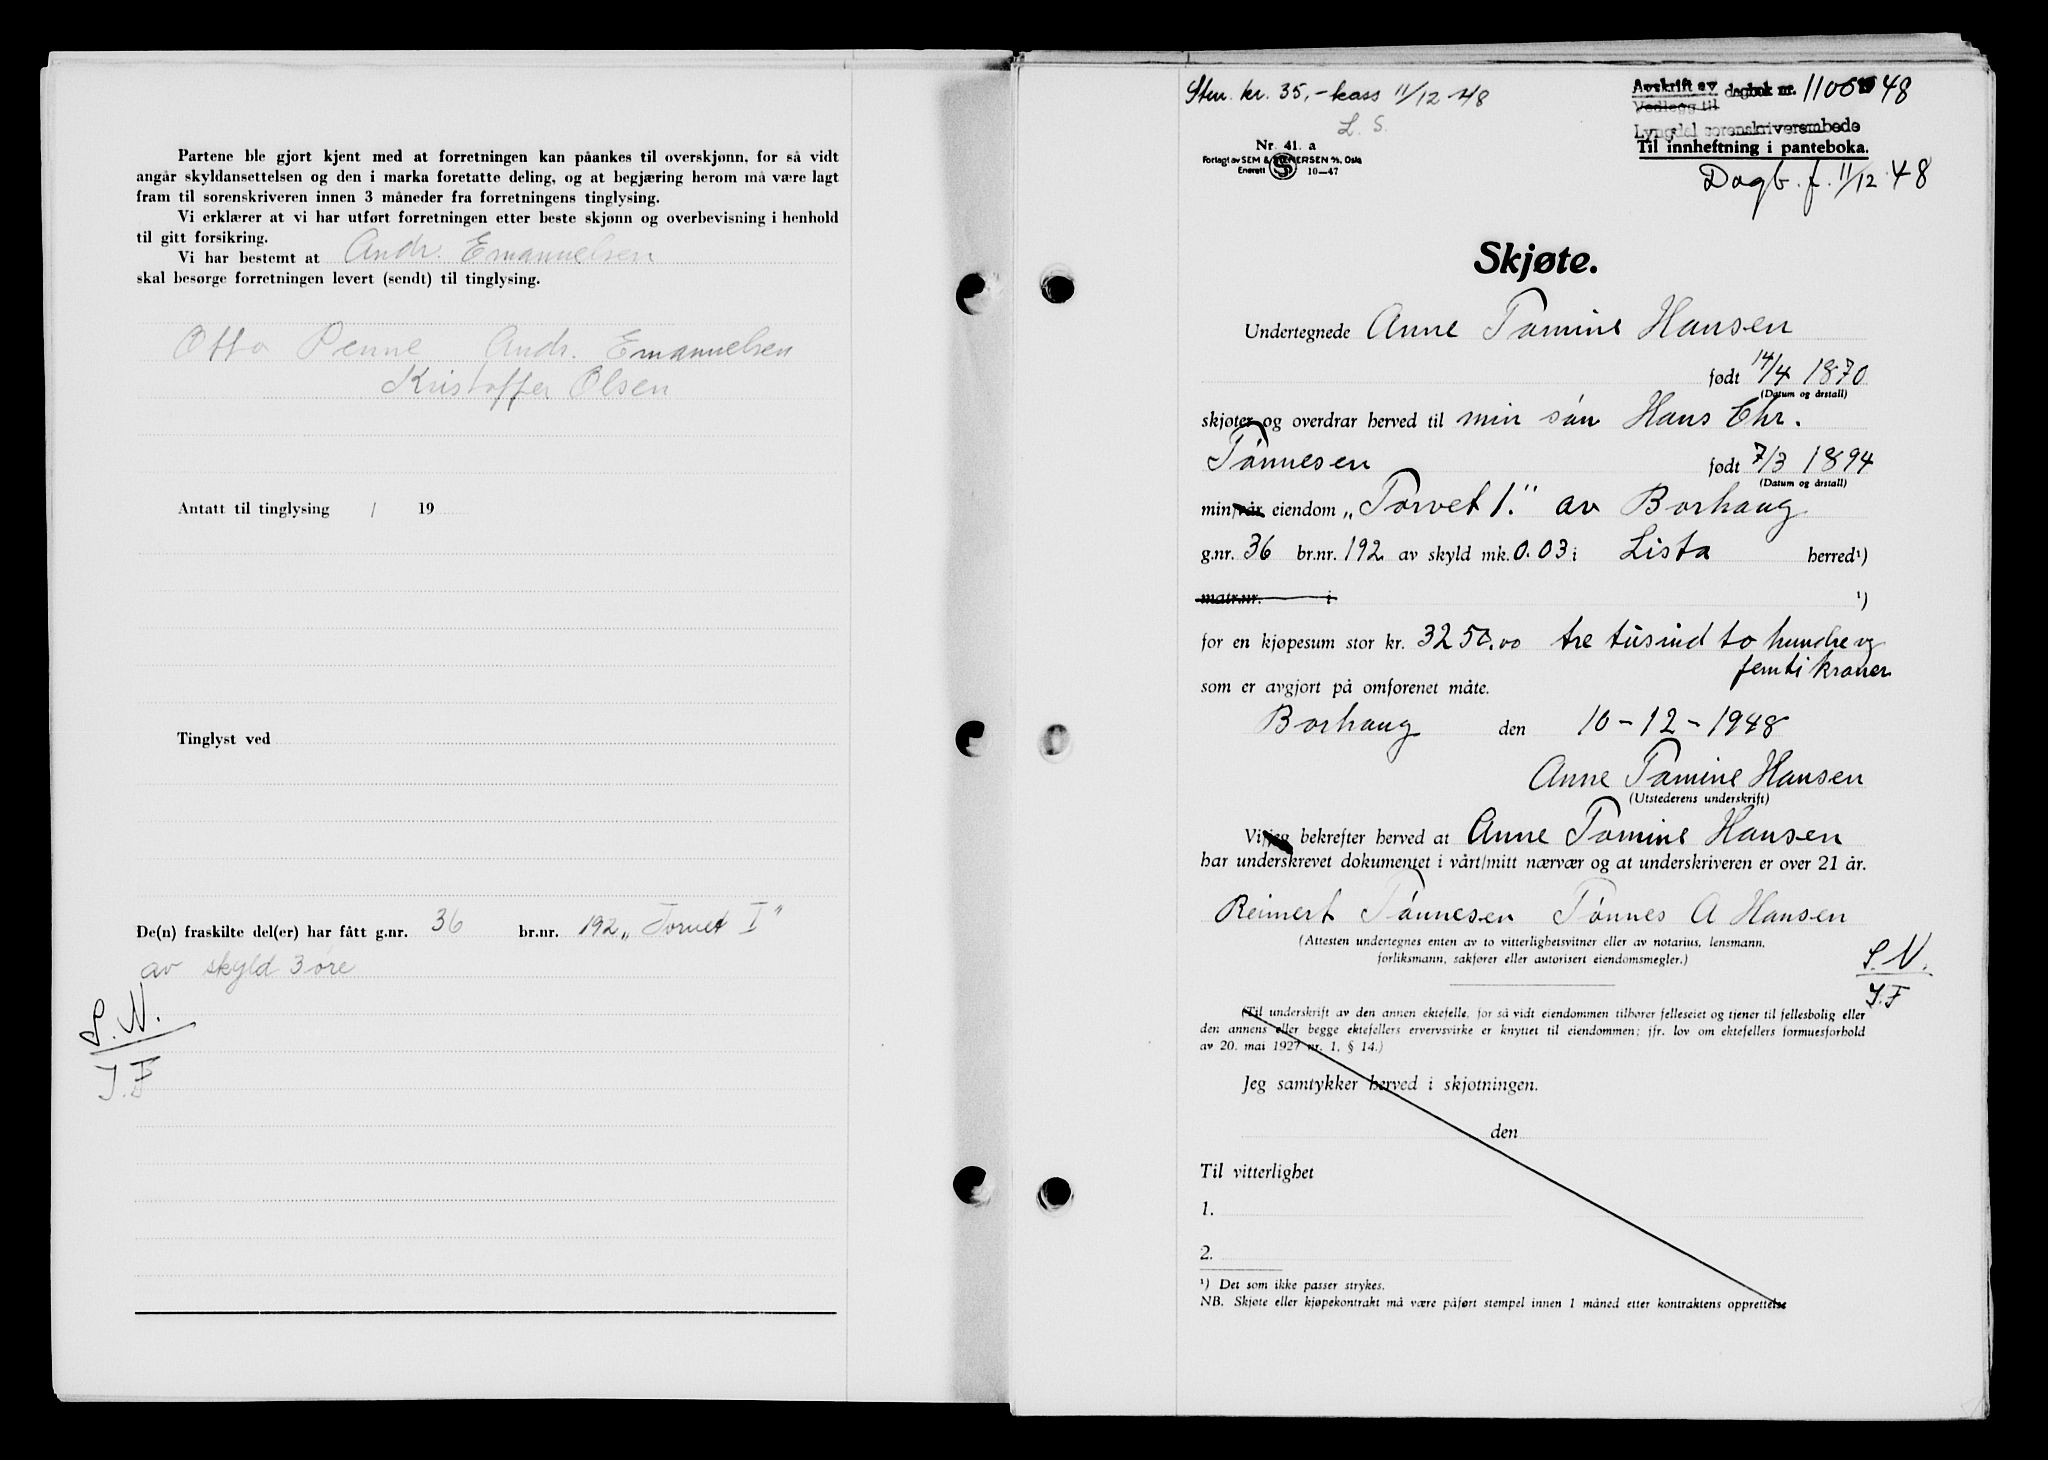 Partene ble gjort kjent med at forretningen kan påankes til overskjønn, for så vidt
angår skyldansettelsen og den i marka foretatte deling, og at begjæring herom må være lagt
fram til sorenskriveren innen 3 måneder fra forretningens tinglysing.
Vi erklærer at vi har utført forretningen etter beste skjønn og overbevisning i henhold
til gitt forsikring.
Vi har bestemt at Andr. Emanuelsen
skal besørge forretningen levert (sendt) til tinglysing.
Otto Penne Andr. Emanuelsen
Kristoffer Olsen
Antatt til tinglysing / 19
Tinglyst ved
De(n) fraskilte del(er) har fått g.nr. 36 br.nr. 192 „Torvet I"
av skyld 3 øre
S.N.
J.F
Stem. kr. 35,- kass 11/12 48
L. S.
Nr. 41. a
Forlagt av SEM & STENERSEN A/S, Oslo
Enerett S 10-47
Avskrift av dagbok nr. 1100 48
Vedlegg til
Lyngdal sorenskriverembede
Til innheftning i panteboka.
Dagb. f. 11/12 48
Skjøte.
Undertegnede Anne Tomine Hansen
født 14/4 1870
(Datum og årstall)
skjøter og overdrar herved til min sön Hans Chr.
Tönnesen født 7/3 1894
(Datum og årstall)
min/vår eiendom „Torvet 1." av Borhaug
g.nr. 36 br.nr. 192 av skyld mk. 0.03 i Lista herred¹)
matr.nr. i ¹)
for en kjøpesum stor kr. 3250.00 tre tusind to hundre og
femti kroner
som er avgjort på omforenet måte.
Borhaug den 10-12-1948
Anne Tomine Hansen
(Utstederens underskrift)
Vi/jeg bekrefter herved at Anne Tomine Hansen
har underskrevet dokumentet i vårt/mitt nærvær og at underskriveren er over 21 år.
Reimert Tönnesen Tönnes A Hansen
(Attesten undertegnes enten av to vitterlighetsvitner eller av notarius, lensmann,
forliksmann, sakfører eller autorisert eiendomsmegler.)
S.N.
J.F
(Til underskrift av den annen ektefelle, for så vidt eiendommen tilhører felleseiet og tjener til fellesbolig eller
den annens eller begge ektefellers ervervsvirke er knyttet til eiendommen; jfr. lov om ektefellers formuesforhold
av 20. mai 1927 nr. 1, § 14.)
Jeg samtykker herved i skjøtningen.
den
Til vitterlighet
1.
2.
¹) Det som ikke passer strykes.
NB. Skjøte eller kjøpekontrakt må være påført stempel innen 1 måned etter kontraktens opprettelse